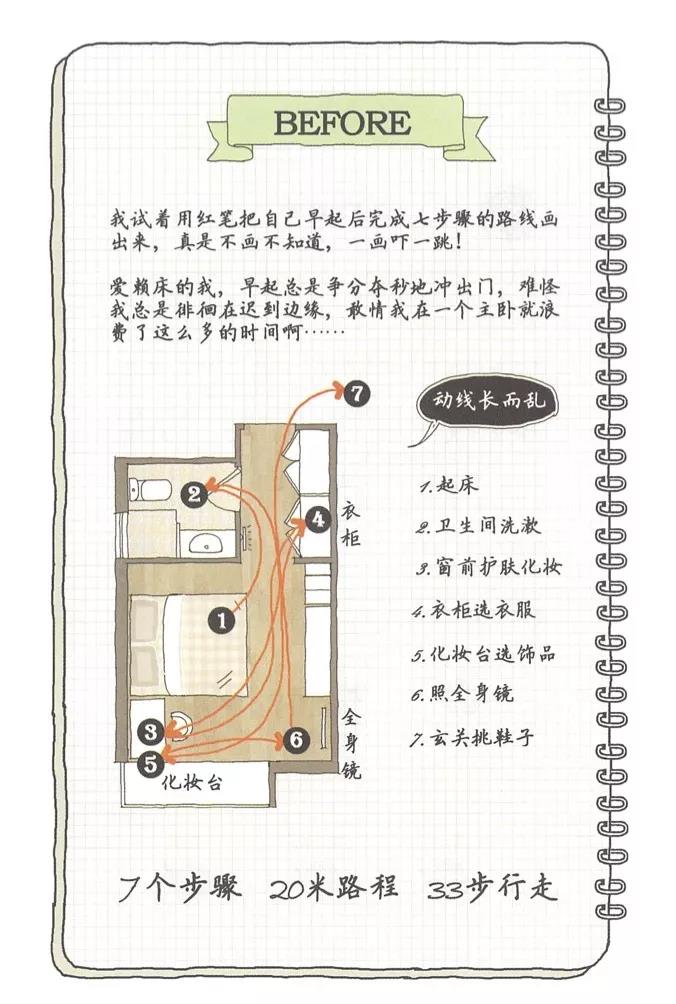 BEFORE
我试着用红笔把自己早起后完成七步骤的路线画
出来，真是不画不知道，一画吓一跳！
爱赖床的我，早起总是争分夺秒地冲出门，难怪
我总是徘徊在迟到边缘，敢情我在一个主卧就浪
费了这么多的时间啊……
7
动线长而乱
2
4
衣柜
1
3
5
6
全身镜
化妆台
1.起床
2.卫生间洗漱
3.窗前护肤化妆
4.衣柜选衣服
5.化妆台选饰品
6.照全身镜
7.玄关挑鞋子
7个步骤 20米路程 33步行走